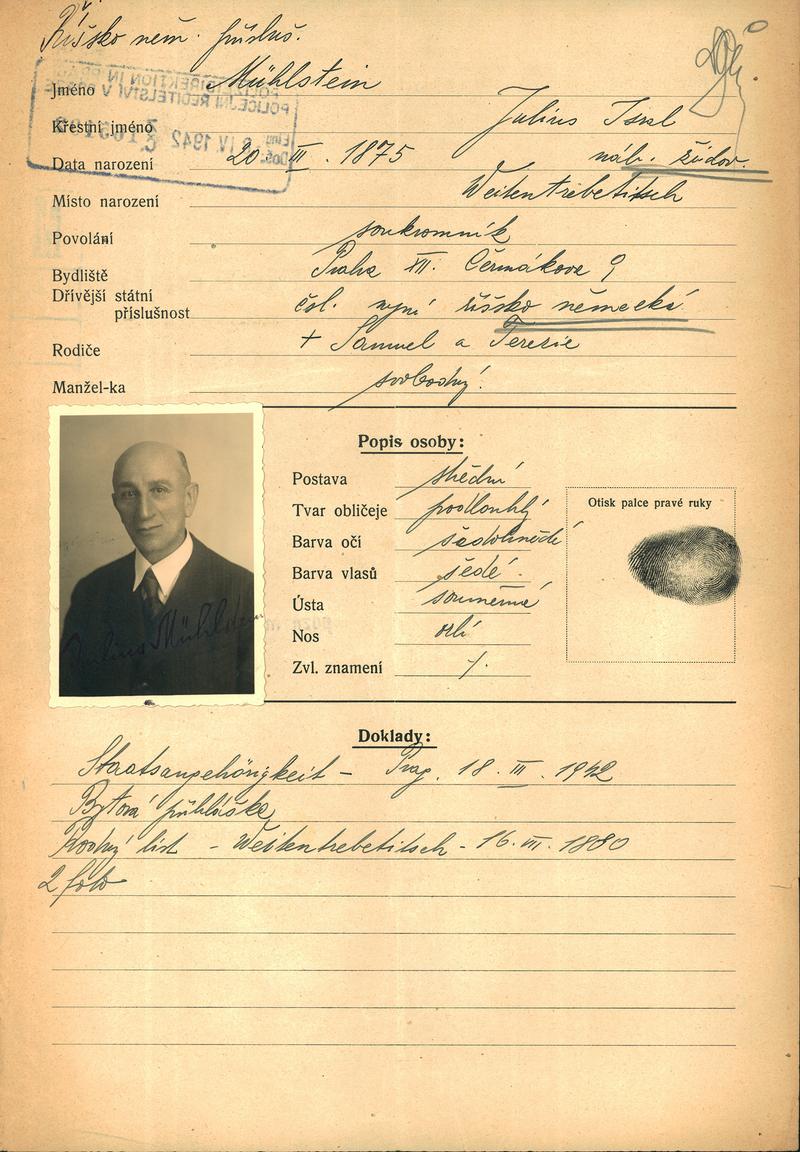 Říšsko něm. přísluš.
Jméno Mühlstein
Křestní jméno Julius Isrl
Data narození 20 III. 1875 náb. židov.
Místo narození Weitentrebetitsch
Povolání soukromník
Bydliště Praha XII. Čermákova 9
Dřívější státní
příslušnost čsl. nyní říšsko německá
Rodiče + Samuel a Terezie
Manžel-ka svobodný.
POLIZEIDIREKTION IN
POLICEJNÍ ŘEDITELSTVÍ V
IV 1942
Popis osoby:
Postava střední
Tvar obličeje podlouhlý
Barva očí šedohnědé
Barva vlasů šedé.
Ústa souměrná
Nos orlí
Zvl. znamení /.
Otisk palce pravé ruky
Julius Mühlstein
Doklady:
Staatsangehörigkeit - Prag. 18. III. 1942
Bytová přihláška
Rodný list - Weitentrebetitsch - 16. VI. 1880
2 foto